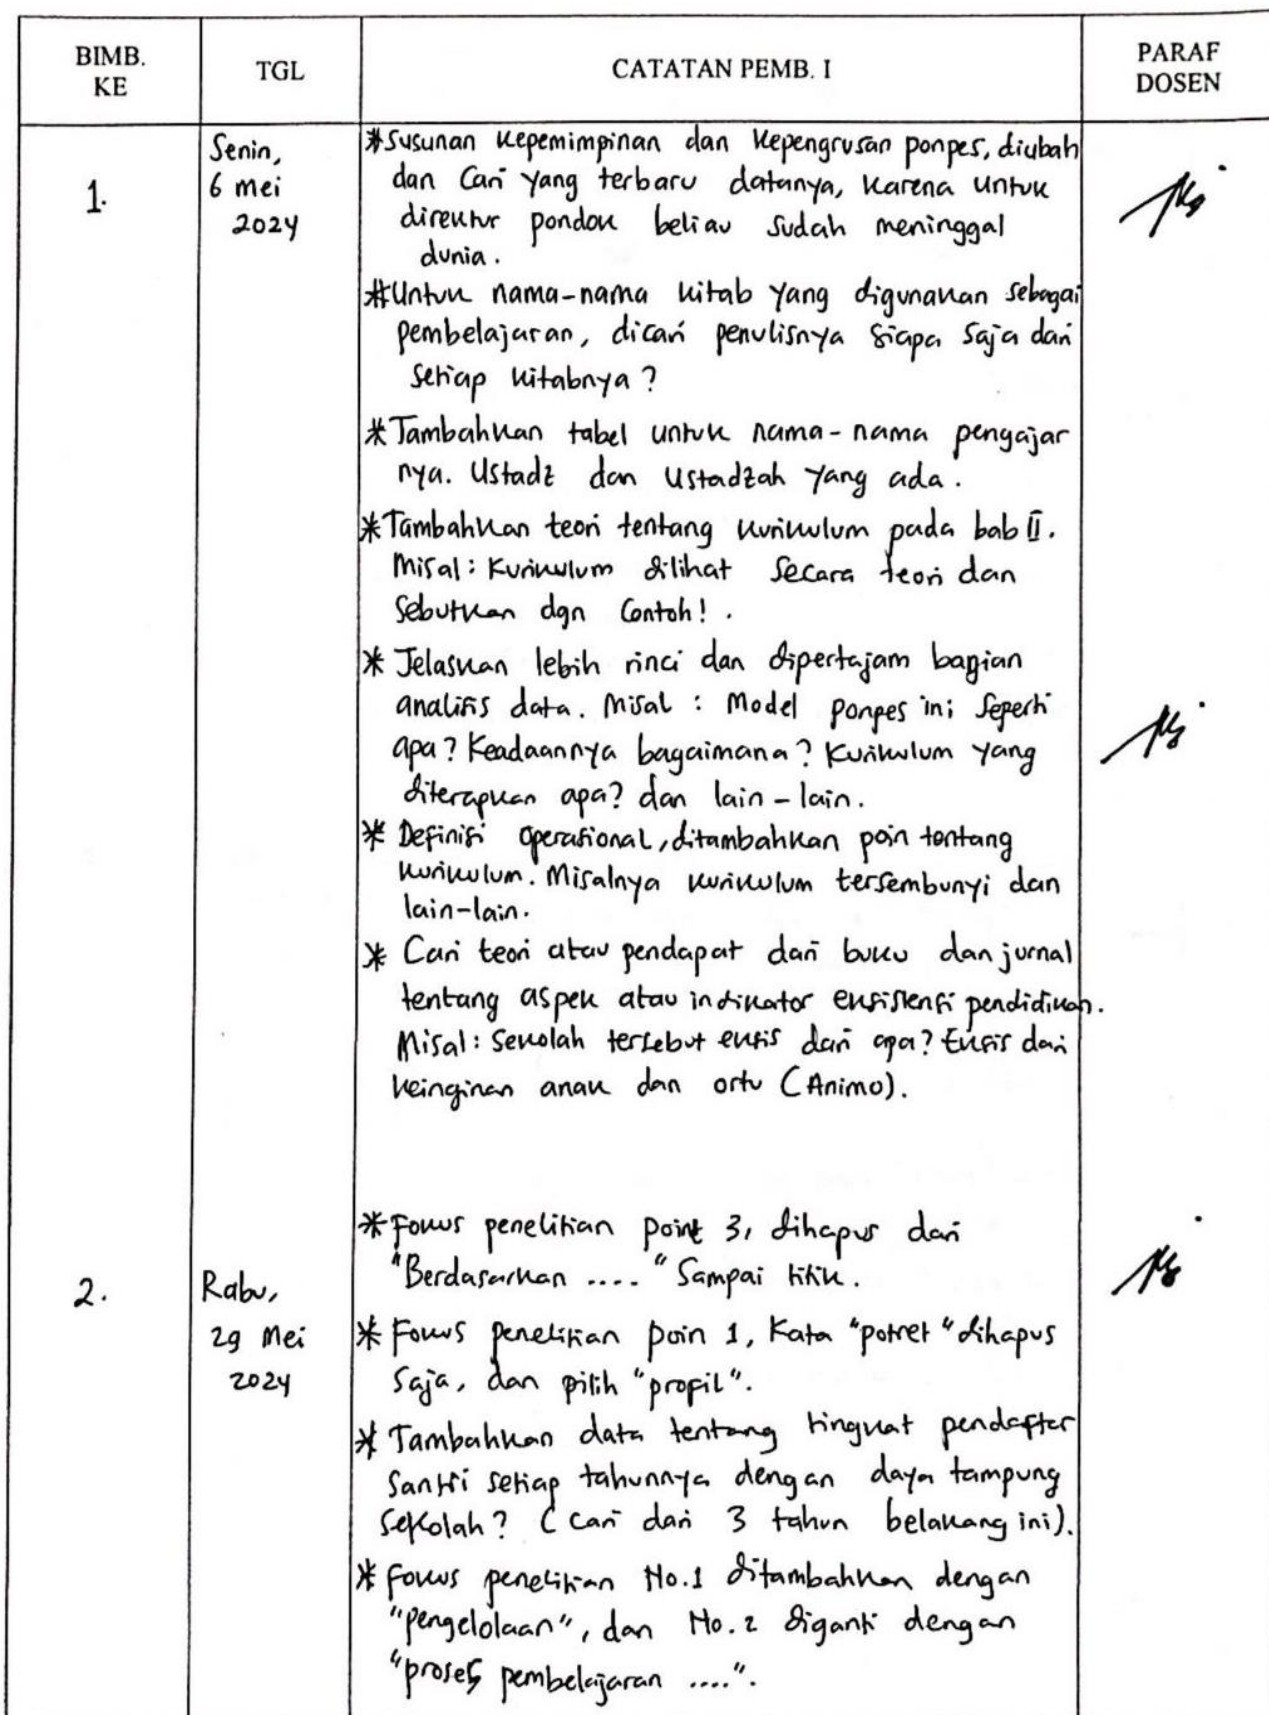 BIMB.
KE
TGL
CATATAN PEMB. I
PARAF
DOSEN
1.
Senin,
6 mei
2024
*Susunan kepemimpinan dan kepengrusan ponpes, diubah
dan Cari yang terbaru datanya, karena untuk
direktur pondok beliau sudah meninggal
dunia.
*Untuk nama-nama kitab yang digunakan sebagai
pembelajaran, dicari penulisnya siapa saja dari
setiap kitabnya?
*Tambahkan tabel untuk nama-nama pengajar
nya. Ustadz dan Ustadzah yang ada.
*Tambahkan teori tentang kurikulum pada bab II.
Misal: Kurikulum dilihat secara teori dan
Sebutkan dgn Contoh!.
* Jelaskan lebih rinci dan dipertajam bagian
analisis data. Misal : Model ponpes ini seperti
apa? Keadaannya bagaimana? Kurikulum yang
diterapkan apa? dan lain-lain.
* Definisi operasional, ditambahkan poin tentang
kurikulum. Misalnya kurikulum tersembunyi dan
lain-lain.
* Cari teori atau pendapat dari buku dan jurnal
tentang aspek atau indikator eksistensi pendidikan.
Misal: Sekolah tersebut eksis dari apa? Eksis dari
keinginan anak dan ortu (Animo).
2.
Rabu,
29 Mei
2024
*Fokus penelitian point 3, dihapus dari
"Berdasarkan ...." Sampai titik.
* Fokus penelitian poin 1, Kata "potret" dihapus
saja, dan pilih "profil".
* Tambahkan data tentang tingkat pendaftar
Santri setiap tahunnya dengan daya tampung
sekolah? (Cari dari 3 tahun belakang ini).
* Fokus penelitian No.1 ditambahkan dengan
"pengelolaan", dan No. 2 diganti dengan
"proses pembelajaran ....".